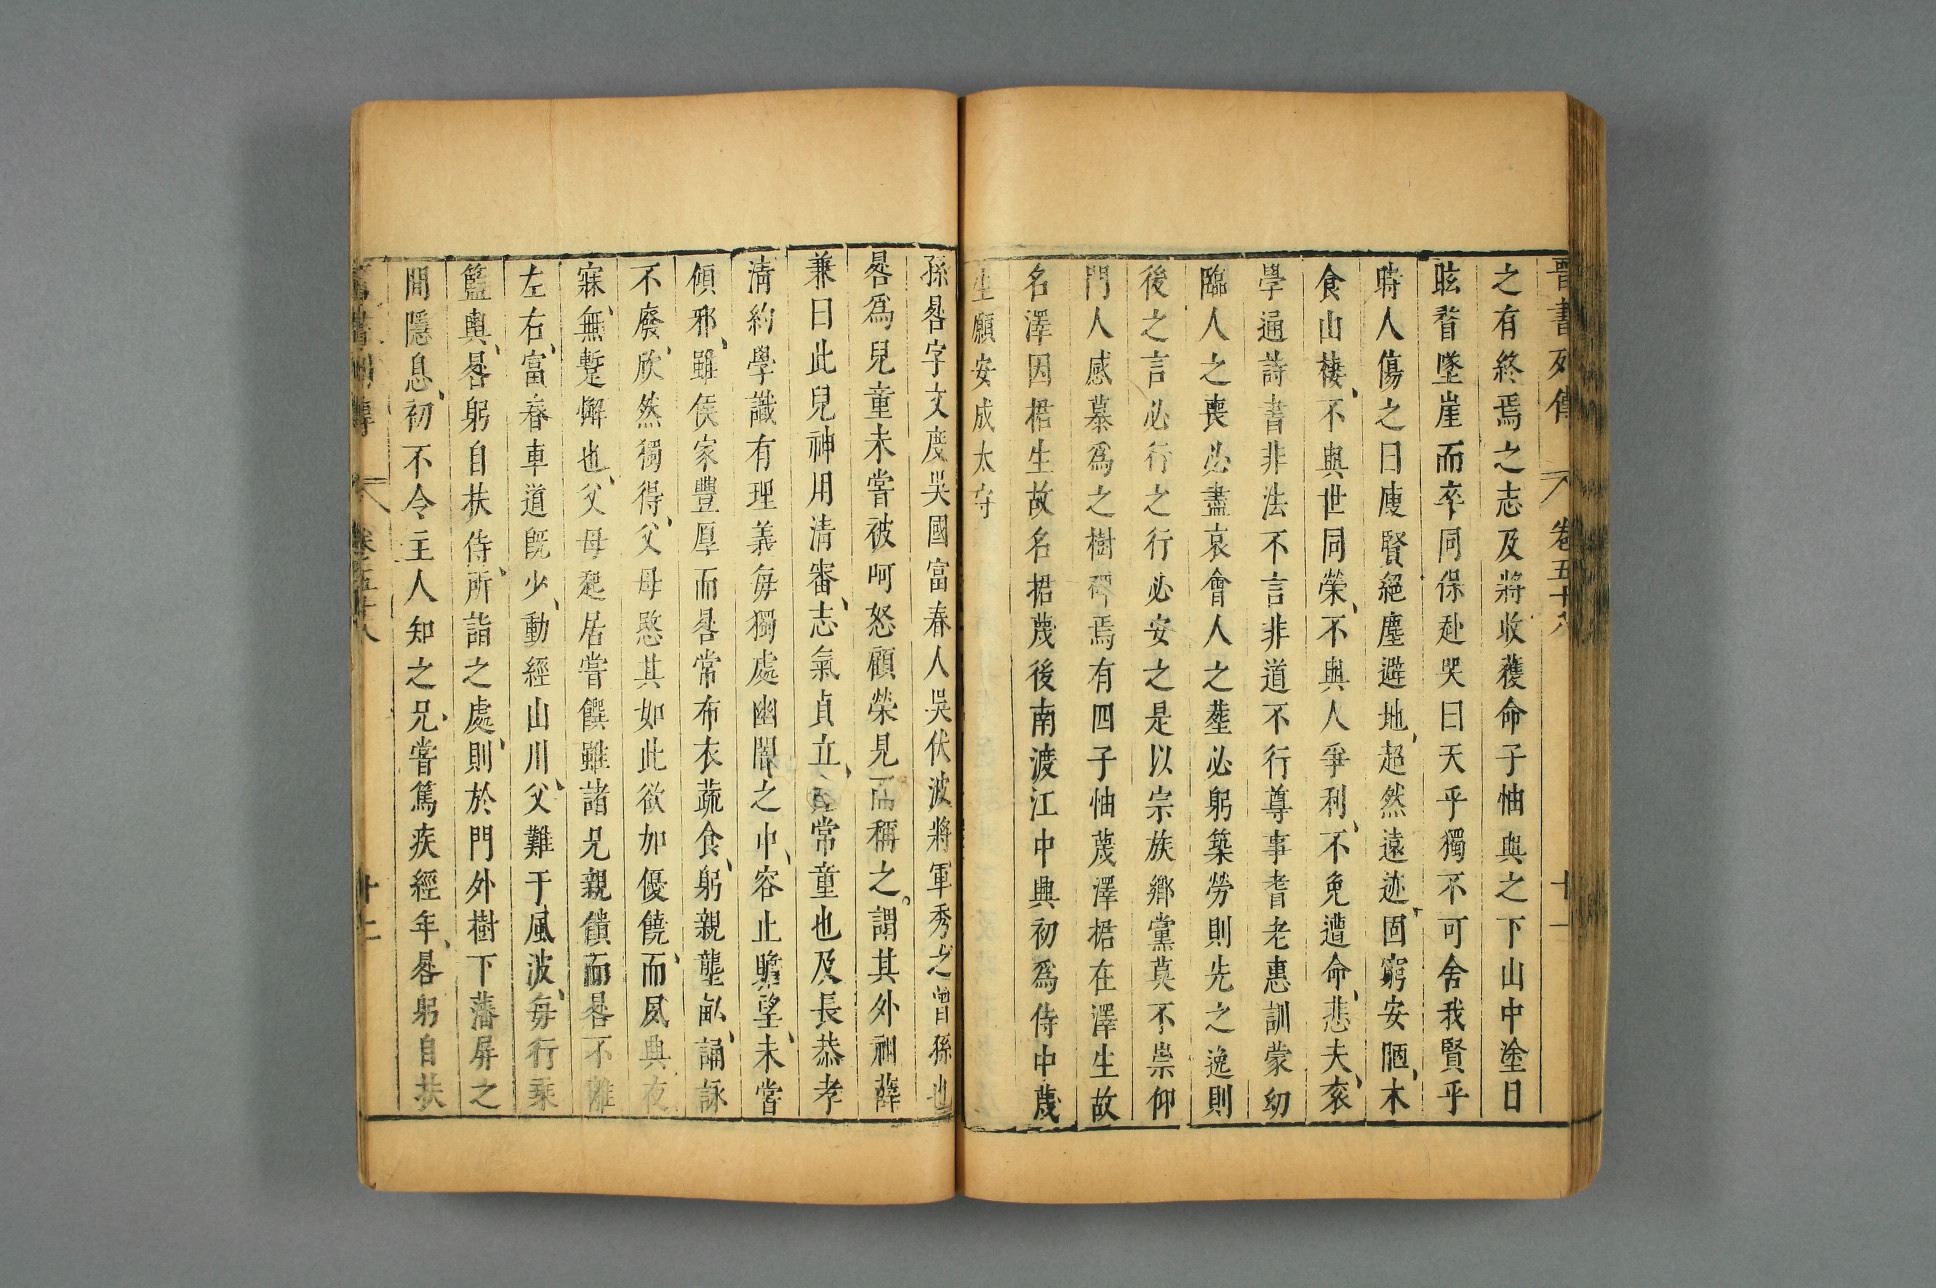 晉書列傳 卷五十八 十一
之有終焉之志及將收穫命子怞與之下山中塗日
眩瞀墜崖而卒同保赴哭曰天乎獨不可舍我賢乎
時人傷之曰庾賢絕塵避地超然遠迹固窮安陋木
食山棲不與世同榮不與人爭利不免遭命悲夫衮
學通詩書非法不言非道不行尊事耆老惠訓蒙幼
臨人之喪必盡哀會人之塟必躬築勞則先之逸則
後之言必行之行必安之是以宗族鄉黨莫不崇仰
門人感慕爲之樹碑焉有四子怞蔑澤捃在澤生故
名澤因捃生故名捃蔑後南渡江中興初爲侍中蔑
生願安成太守
孫晷字文度吳國富春人吳伏波將軍秀之曾孫也
晷爲兒童未嘗被呵怒顧榮見而稱之謂其外祖薛
兼曰此兒神用清審志氣貞立非常童也及長恭孝
清約學識有理義每獨處幽闇之中容止瞻望未嘗
傾邪雖侯家豐厚而晷常布衣蔬食躬親壟畝誦詠
不廢欣然獨得父母愍其如此欲加優饒而夙興夜
寐無蹔懈也父母起居嘗饌雖諸兄親饋而晷不離
左右富春車道旣少動經山川父難于風波每行乘
籃輿晷躬自扶侍所詣之處則於門外樹下藩屏之
間隱息初不令主人知之兄嘗篤疾經年晷躬自扶
晉書列傳 卷之五十八 十二